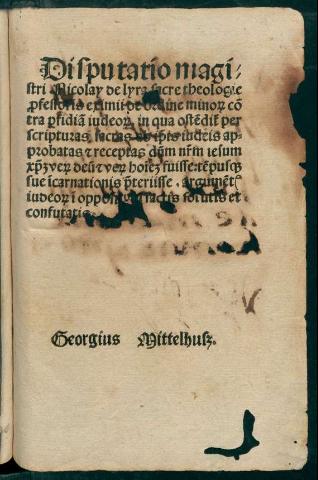 Disputatio magi-
stri Nicolay de lyra sacre theologie
ꝓfessoris eximii de ordine minoꝝ cō
tra ꝑfidiā iudeoꝝ, in qua ostēdit̄ per
scripturas sactas ab ip̄is iudeis ap-
probatas ⁊ receptas dn̄m nr̄m iesum
xp̄m veꝝ deū ⁊ veꝝ hoiez fuisse: tēpusqꝫ
sue īcarnationis p̄terijsse. argumētis
iudeoꝝ ī oppositū factis solutis et
confutatis.
Georgius Mittelhusz.